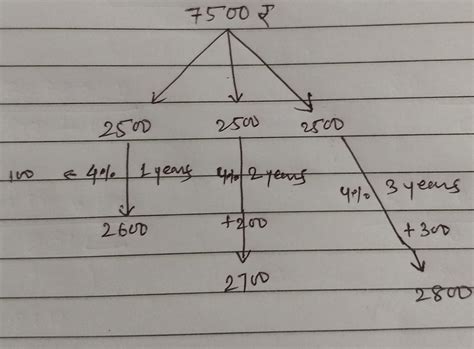 7500 ₹
2500 2500 2500
100 ← 4% 1 years 4% 2 years 4% 3 years
2600 +200 +300
2700
2800